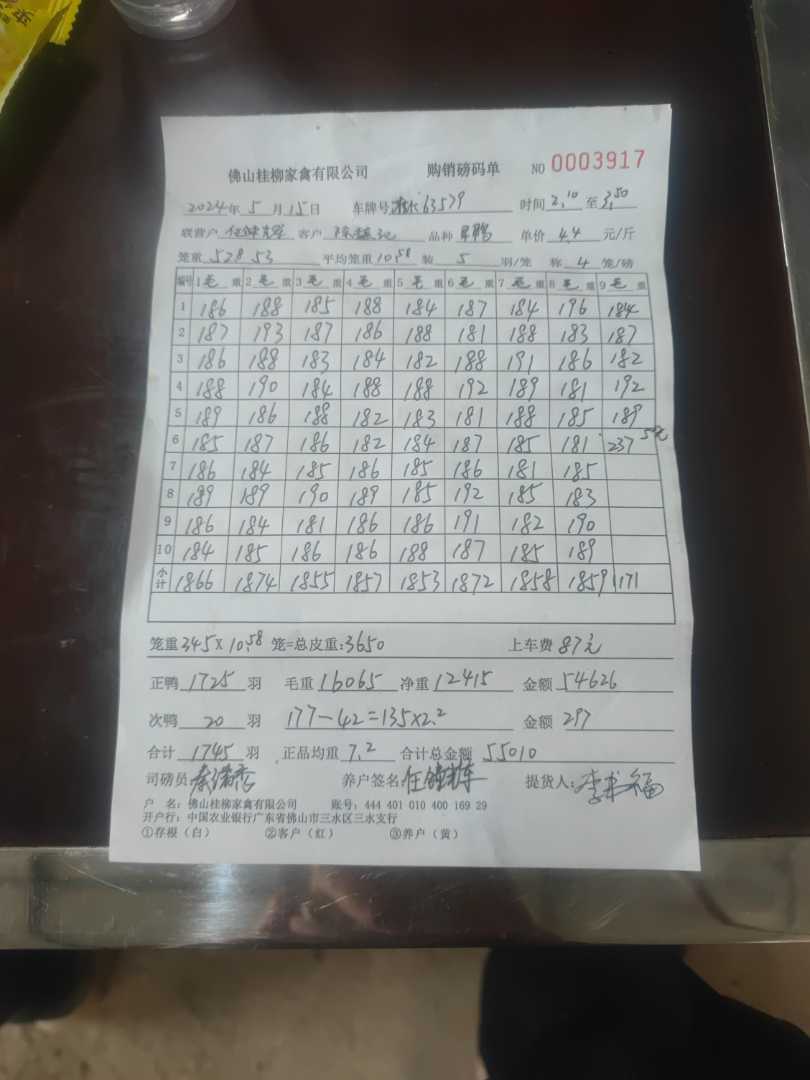 佛山桂柳家禽有限公司 购销磅码单 NO 0003917
2024年 5 月 15日 车牌号 63579 时间 2.10 至 3.50
联营户 客户 品种 单价 4.4 元/斤
笼重 528 53 平均笼重 10.58 装 5 羽/笼 称 4 笼/磅
编号 1 毛 重 2 毛 重 3 毛 重 4 毛 重 5 毛 重 6 毛 重 7 毛 重 8 毛 重 9 毛 重
1 186 188 185 188 184 187 184 196 184
2 187 193 187 186 188 181 188 183 187
3 186 188 183 184 182 188 191 186 182
4 188 190 184 188 188 192 189 181 192
5 189 186 188 182 183 181 188 185 189
6 185 187 186 182 184 187 185 181 237
7 186 184 185 186 185 186 181 185
8 189 189 190 189 185 192 185 183
9 186 184 181 186 186 191 182 190
10 184 185 186 186 188 187 185 189
小计 1866 1874 1855 1857 1853 1872 1858 1859 1171
笼重 345 X 10.58 笼=总皮重: 3650 上车费 87元
正鸭 1725 羽 毛重 16065 净重 12415 金额 54626
次鸭 20 羽 177-42=135X2.2 金额 297
合计 1745 羽 正品均重 7.2 合计总金额 55010
司磅员 养户签名 提货人: 李 福
户 名: 佛山桂柳家禽有限公司 账号: 444 401 010 400 169 29
开户行: 中国农业银行广东省佛山市三水区三水支行
①存根（白） ②客户（红） ③养户（黄）